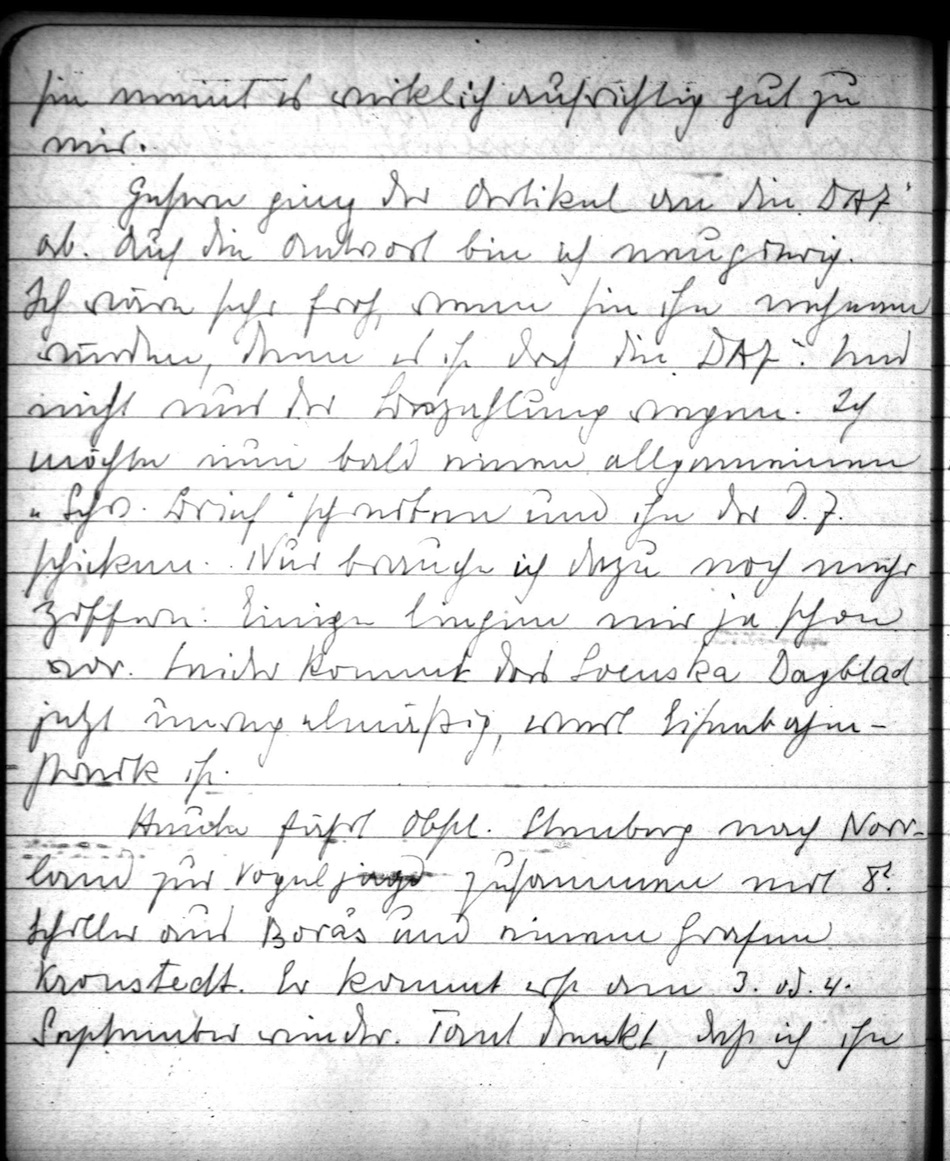 sie meint es wirklich aufrichtig gut zu
mir.
Gestern ging der Artikel an die „DAZ"
ab. Auf die Antwort bin ich neugierig.
Ich wäre sehr froh, wenn sie ihn nehmen
würden, denn es ist doch die „DAZ". Und
nicht nur der Bezahlung wegen. Ich
möchte nun bald einen allgemeinen
„Schw. Brief" schreiben und ihn der D.Z.
schicken. Nur brauche ich dazu noch mehr
Ziffern. Einige liegen mir ja schon
vor. Leider kommt das Svenska Dagblad
jetzt unregelmäßig, weil Eisenbahn-
streik ist.
Heute fährt Obstl. Stenberg nach Norr-
land zur Vogeljagd zusammen mit
Schiller aus Borås und einem Grafen
Kronstedt. Er kommt erst am 3. od. 4.
September wieder. Tant denkt, daß ich ihn